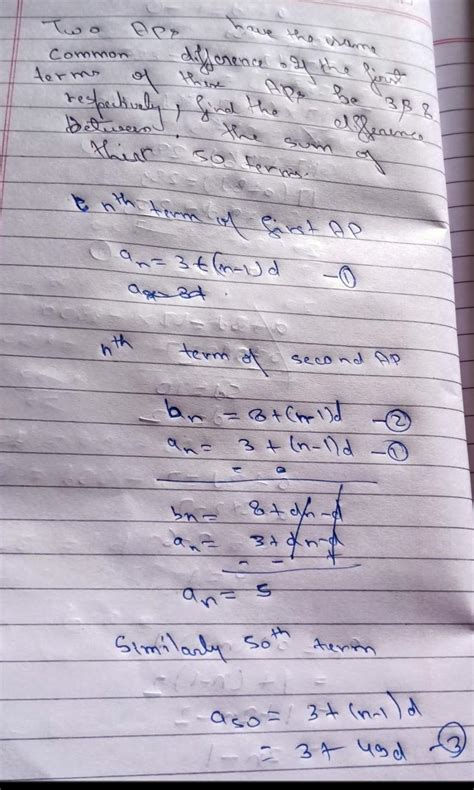 Two APs have the same
common difference . If the first
terms of these APs be 3 & 8
respectively, find the difference
between the sum of
their 50 terms.
nth term of first AP
an = 3 + (n-1)d - ①
nth term of second AP
bn = 8 + (n-1)d - ②
an = 3 + (n-1)d - ①
- -
bn = 8 + dn - d
an = 3 + dn - d
- - +
an = 5
Similarly 50th term
a50 = 3 + (n-1)d
= 3 + 49d - ③